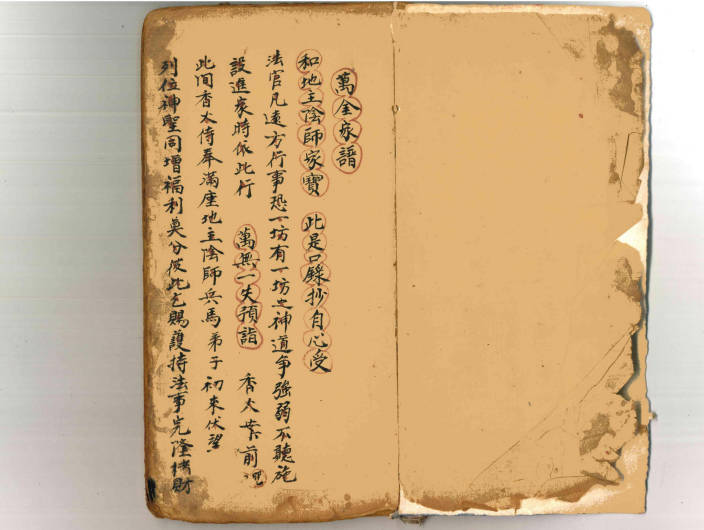 萬金家譜
和地主陰師家寶 此是口錄抄自心受
法官凡遠方行事恐一坊有一坊之神道爭強弱不聽施
設進家時依此行 萬無一失預詣 香火堂前
此间香火侍奉滿座地主陰師兵馬弟子初來伏望
列位神聖同增福利莫分彼此乞賜護持法事光隆財